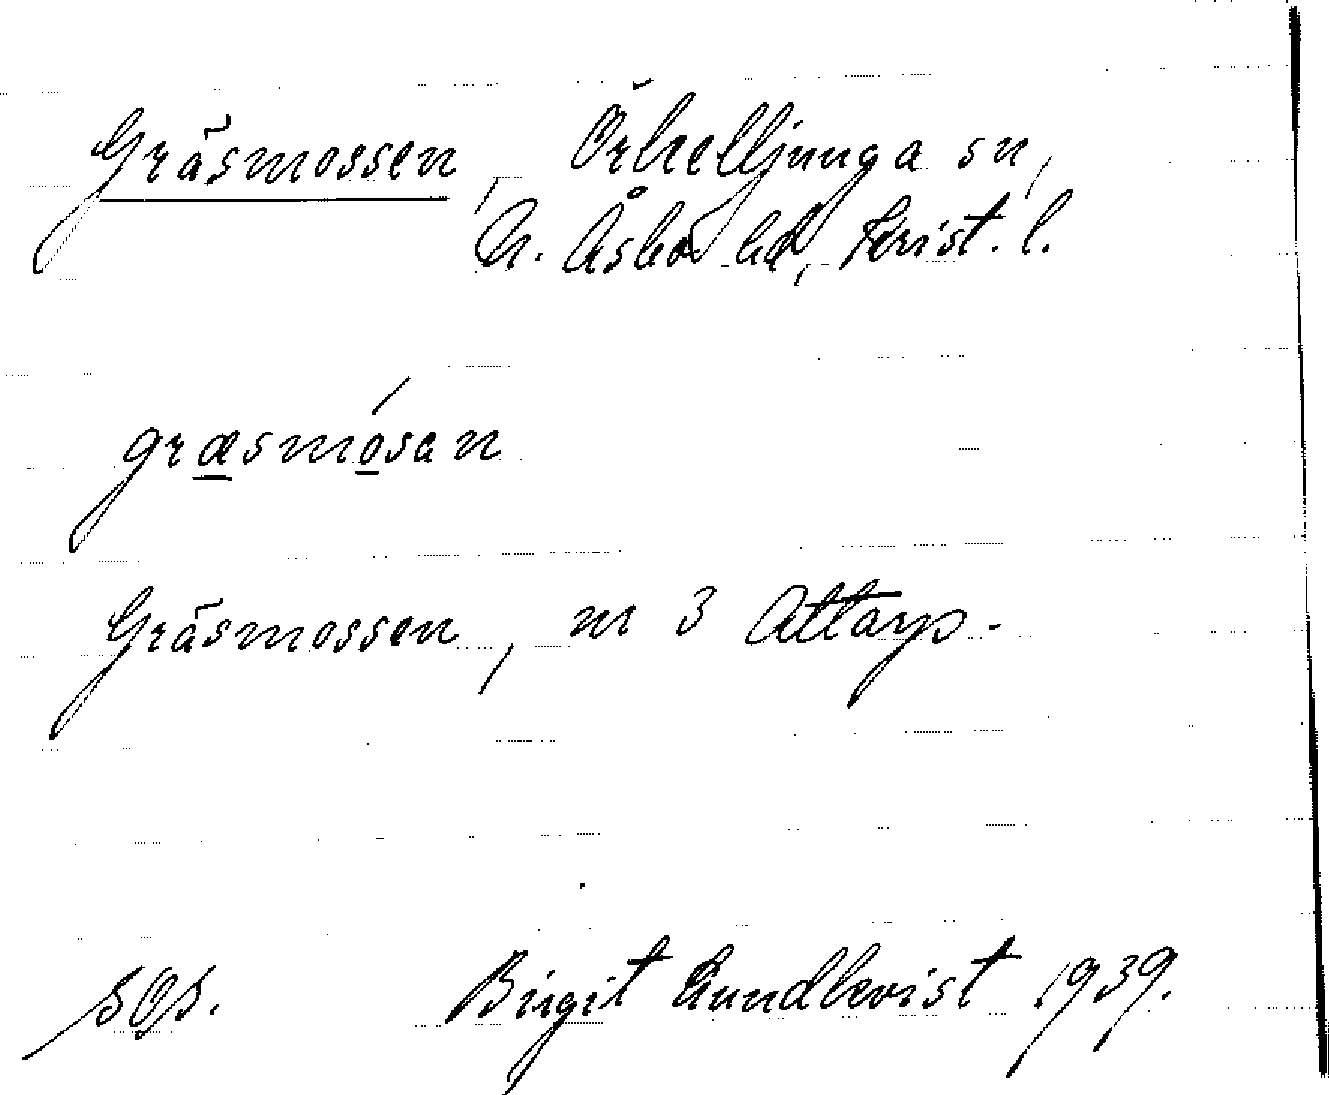 Gräsmossen, Örkelljunga sn,
N. Åsbo hd, Krist. l.
græsmósan
Gräsmossen, nr 3 Attarp.
sgs. Birgit Lundkvist 1939.